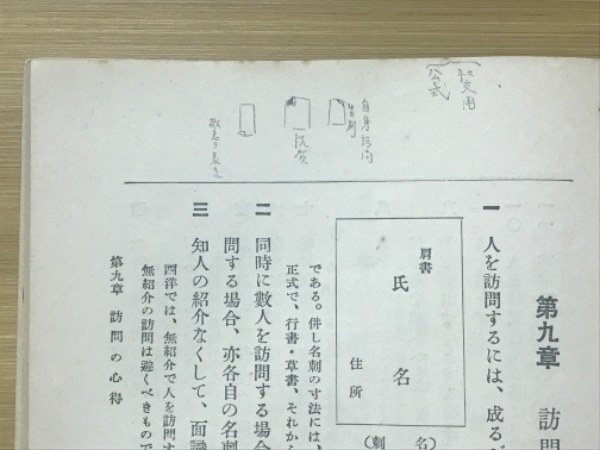 社交用
公式
自身訪問
祝賀
第九章 訪問
一 人を訪問するには、成るべ
肩書
氏名
住所
(名刺
である。併し名刺の寸法には、
正式で、行書・草書、それから
二 同時に數人を訪問する場合
問する場合、亦各自の名刺
三 知人の紹介なくして、面識
西洋では、無紹介で人を訪問す
無紹介の訪問は避くべきもので
第九章 訪問の心得